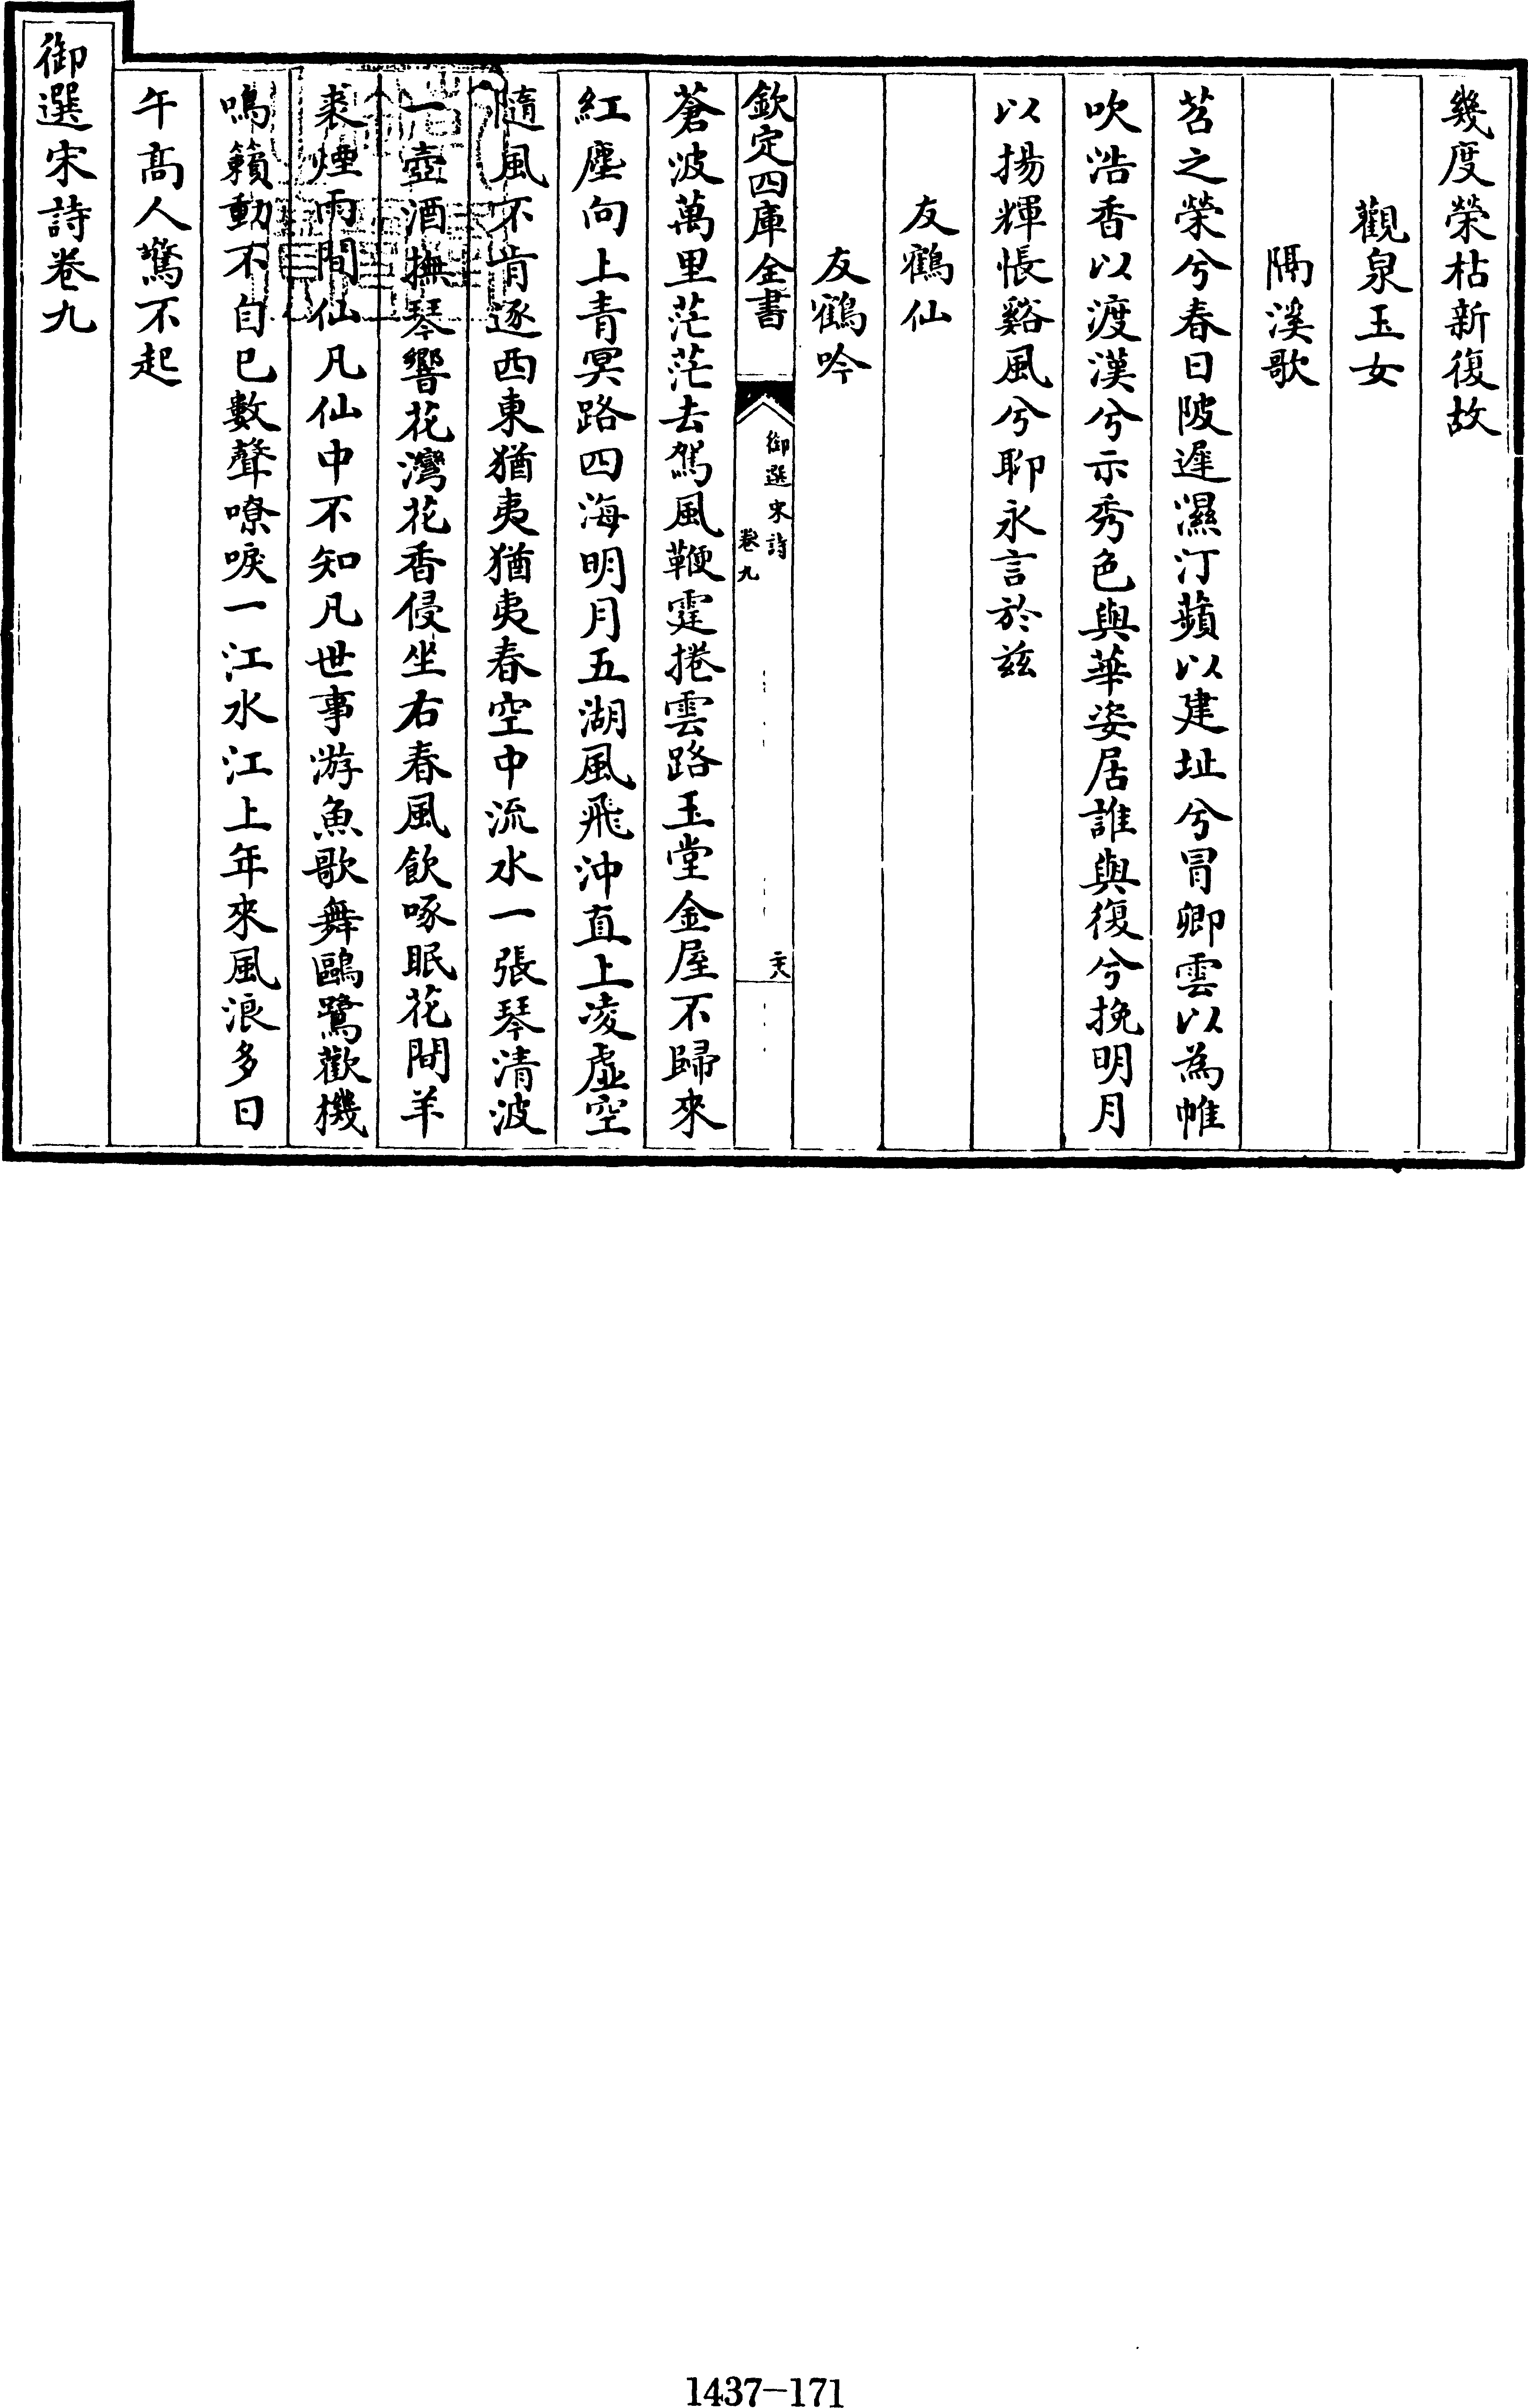 幾度榮枯新復故
觀泉玉女
隔溪歌
苕之榮兮春日陂遲濕汀蘋以建址兮冐卿雲以為帷
吹浩香以渡漢兮示秀色與華姿居誰與復兮挽明月
以揚輝悵谿風兮聊永言於兹
友鶴仙
友鶴吟
欽定四庫全書
御選宋詩
卷九
蒼波萬里茫茫去駕風鞭霆捲雲路玉堂金屋不歸來
紅塵向上青冥路四海明月五湖風飛沖直上凌虛空
隨風不肯逐西東猶夷猶夷春空中流水一張琴清波
一壺酒撫琴響花灣花香侵坐右春風飲啄眠花間羊
裘煙雨間仙凡仙中不知凡世事游魚歌舞鷗鷺歡機
鳴籟動不自已數聲嘹唳一江水江上年來風浪多日
午高人驚不起
御選宋詩卷九
1437-171